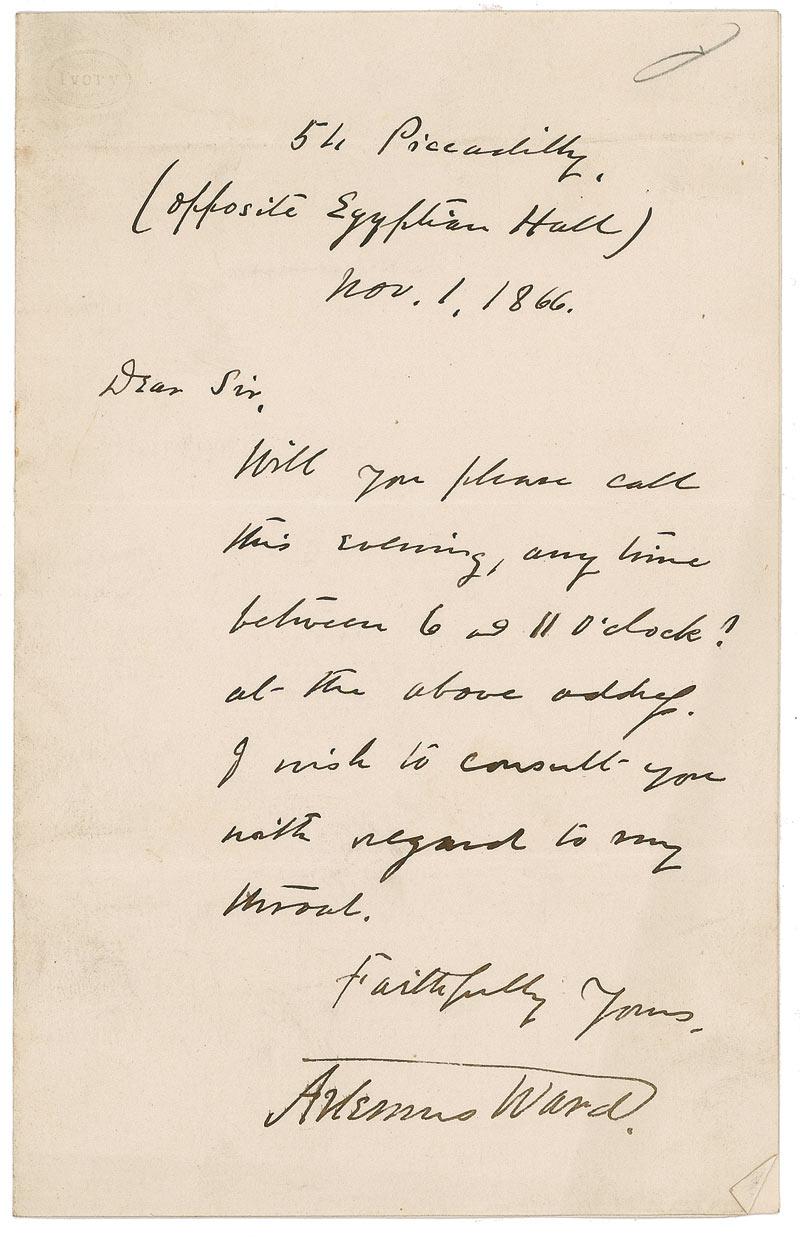 Ivory
54 Piccadilly,
(opposite Egyptian Hall)
Nov. 1, 1866.
Dear Sir,
Will you please call
this evening, any time
between 6 and 11 o'clock?
at the above address.
I wish to consult you
with regard to my
throat.
Faithfully Yours,
Artemus Ward.